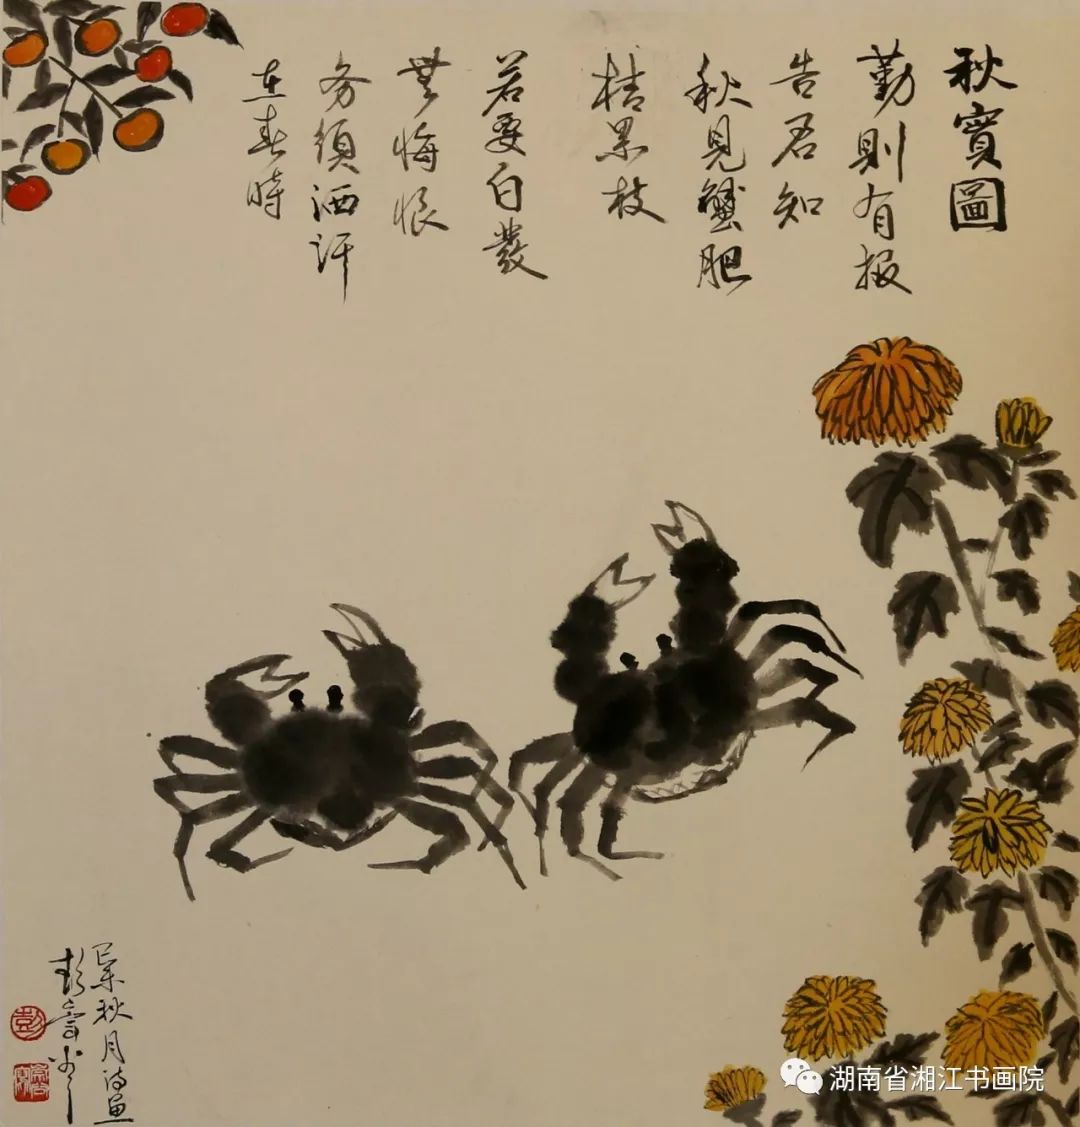 秋實圖
勤則有报
告君知
秋見蟹肥
桔累枝
若要白發
無悔恨
务須洒汗
在春時
秋月诗画
彭
湖南省湘江书画院